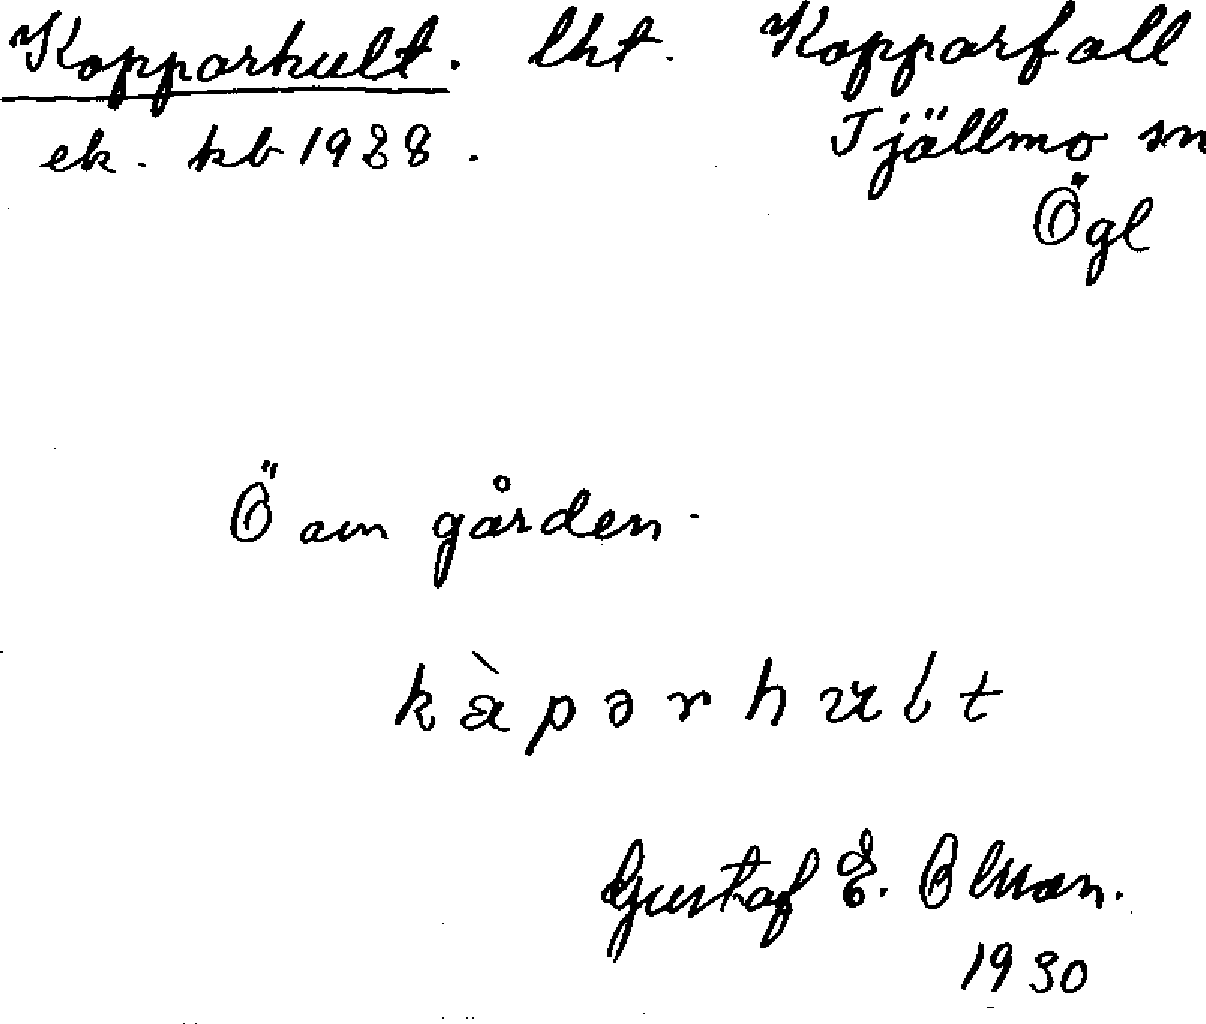 Kopparhult. lht. Kopparfall
ek. kb 1928. Tjällmo sn
Ögl
Ö om gården.
kàpərhult
Gustaf E. Olsson.
1930